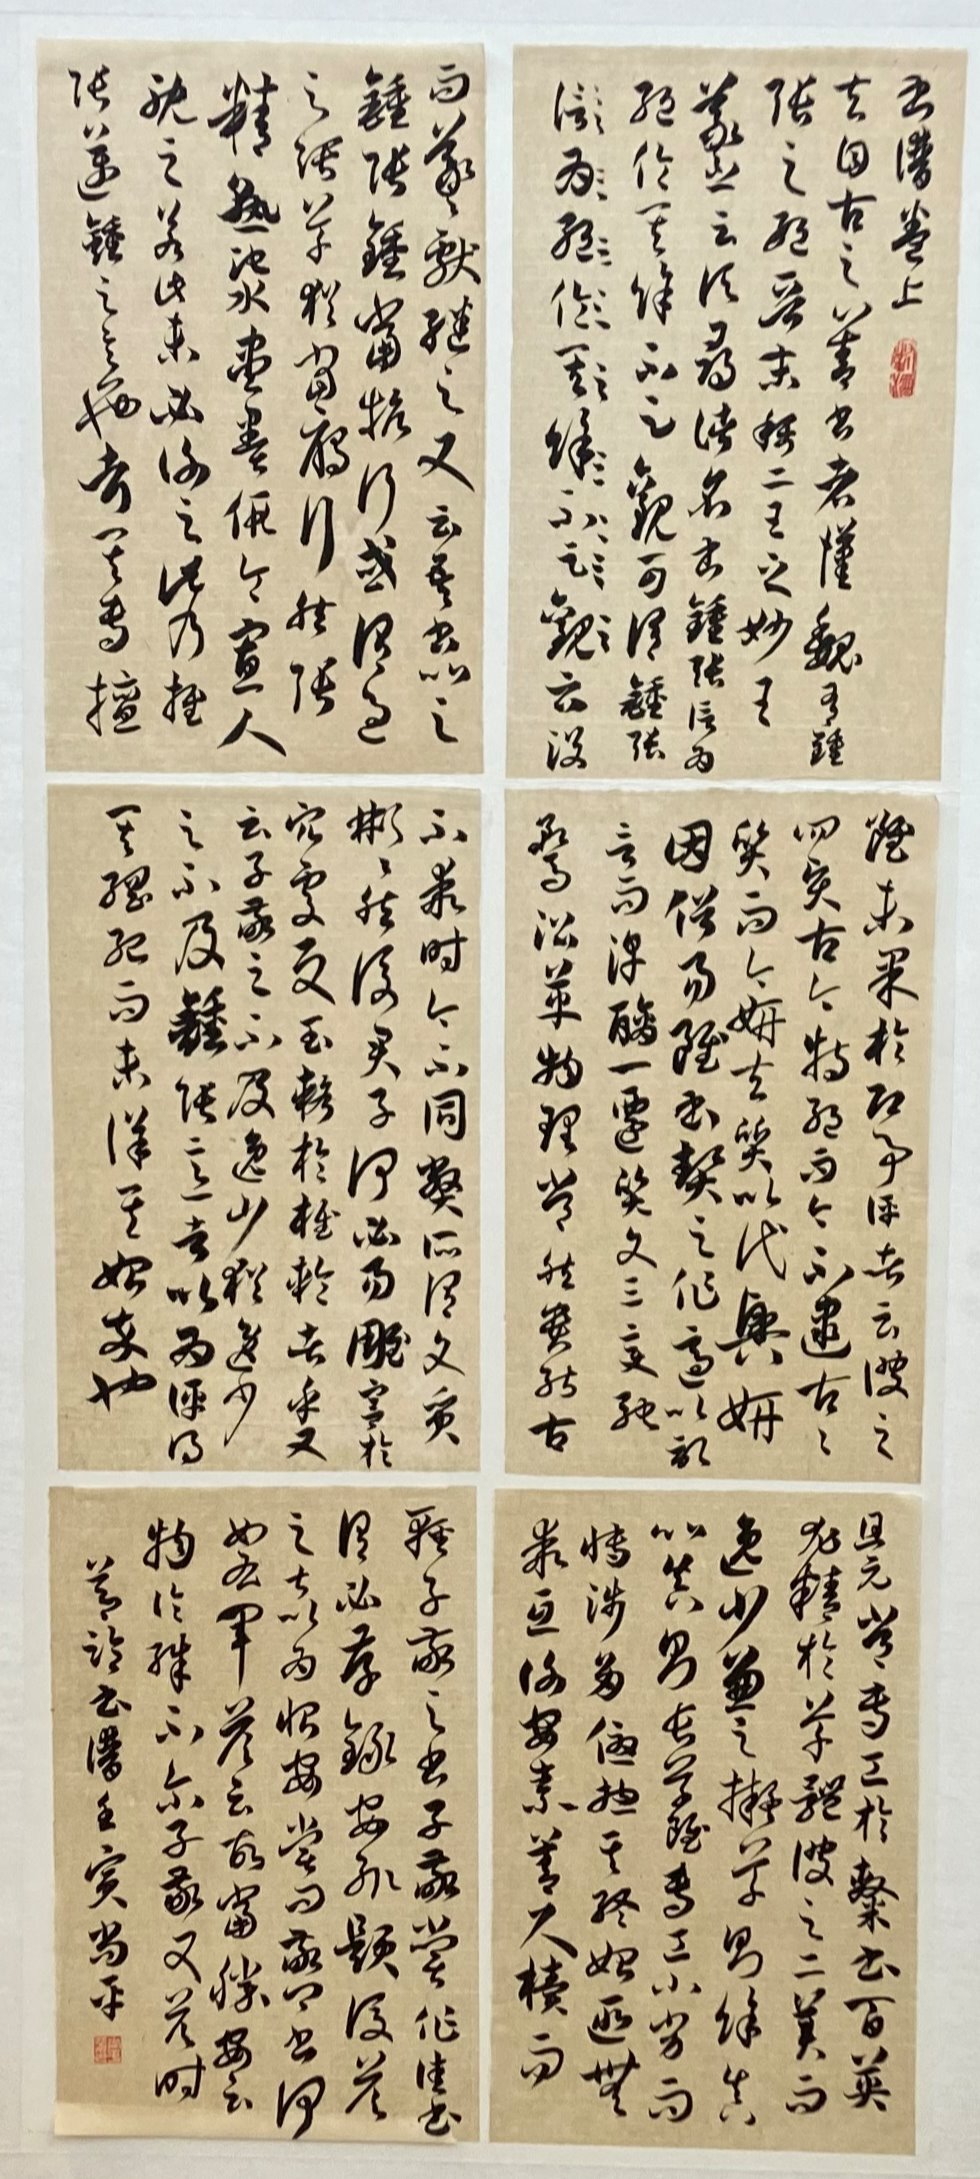 書譜卷上
夫自古之善書者漢魏有鍾
張之絕晉末稱二王之妙王
羲之云頃尋諸名書鍾張信為
絕倫其餘不足觀可謂鍾張
信為絕倫其餘不足觀云沒
而羲獻繼之又云吾書比之
鍾張鍾當抗行或謂過
之張草猶當雁行然張
精熟池水盡墨假令寡人
耽之若此未必謝之此乃推
張邁鍾之意也考其專擅
雖未果於即事評者云彼之
四賢古今特絕而今不逮古〻
質而今妍夫質以代興妍
因俗易雖書契之作適以記
言而淳醨一遷質文三變馳
騖沿革物理常然貴能古
不乖時今不同弊所謂文質
彬〻然後君子何必易雕宮於
穴處反玉輅於椎輪者乎又
云子敬之不及逸少猶逸少
之不及鍾張意者以為評得
其綱紀而未詳其始卒也
且元常專工於隸書百英
尤精於草體彼之二美而
逸少兼之擬草則餘真
比真則長草雖專工小劣而
博涉多優總其終始匪無
乖互謝安素善尺牘而
輕子敬之書子敬嘗作佳書
謂必存錄安輒題後答
之甚以為恨安嘗問敬卿書何
如右軍答云故當勝安云
物論殊不爾子敬又答時
節臨書譜壬寅尚平